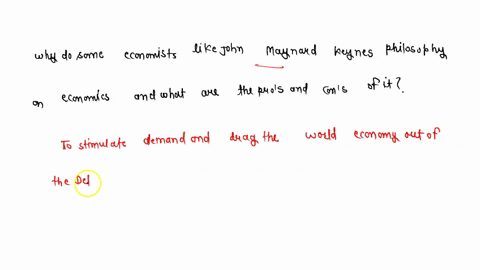 why do some economists like john Maynard keynes philosophy
on economics and what are the pro's and con's of it?
To stimulate demand and drag the world economy out of
the Del